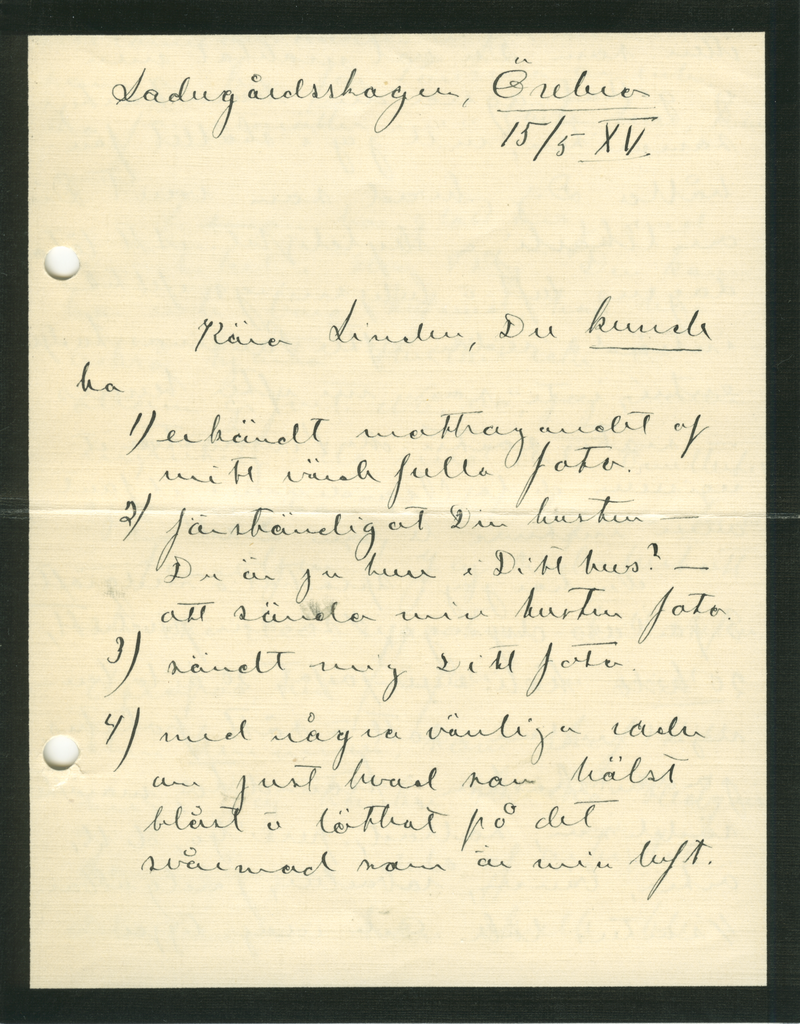 Ladugårdsskogen, Örebro
15/5 XV.
Käre Linder, Du kunde
ha
1) erkändt mottagandet af
mitt värdefulla foto.
2) förständigat Din hustru —
Du är ju herre i Ditt hus? —
att sända min hustru foto.
3) sändt mig Ditt foto.
4) med några vänliga rader
om just hvad som hälst
blåst o lättat på det
svårmod som är min luft.